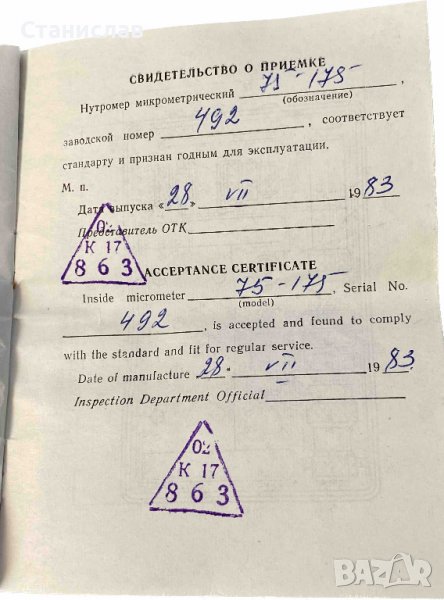 Станислав
СВИДЕТЕЛЬСТВО О ПРИЕМКЕ
Нутромер микрометрический 75-175,
(обозначение)
492, соответствует
заводской номер
стандарту и признан годным для эксплуатации.
М. п.
Дата выпуска «28» VII 1983
Представитель ОТК
02
К 17
8 6 3
ACCEPTANCE CERTIFICATE
Inside micrometer 75-175, Serial No.
(model)
492, is accepted and found to comply
with the standard and fit for regular service.
Date of manufacture 28 VII 1983
Inspection Department Official
02
К 17
8 6 3
BAZAR